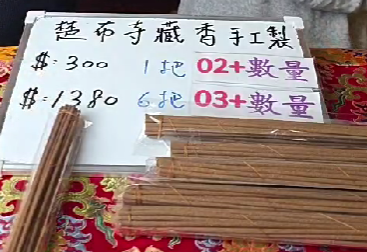 楚布寺藏香手工製
$:300 1把 02+數量
$:1380 6把 03+數量